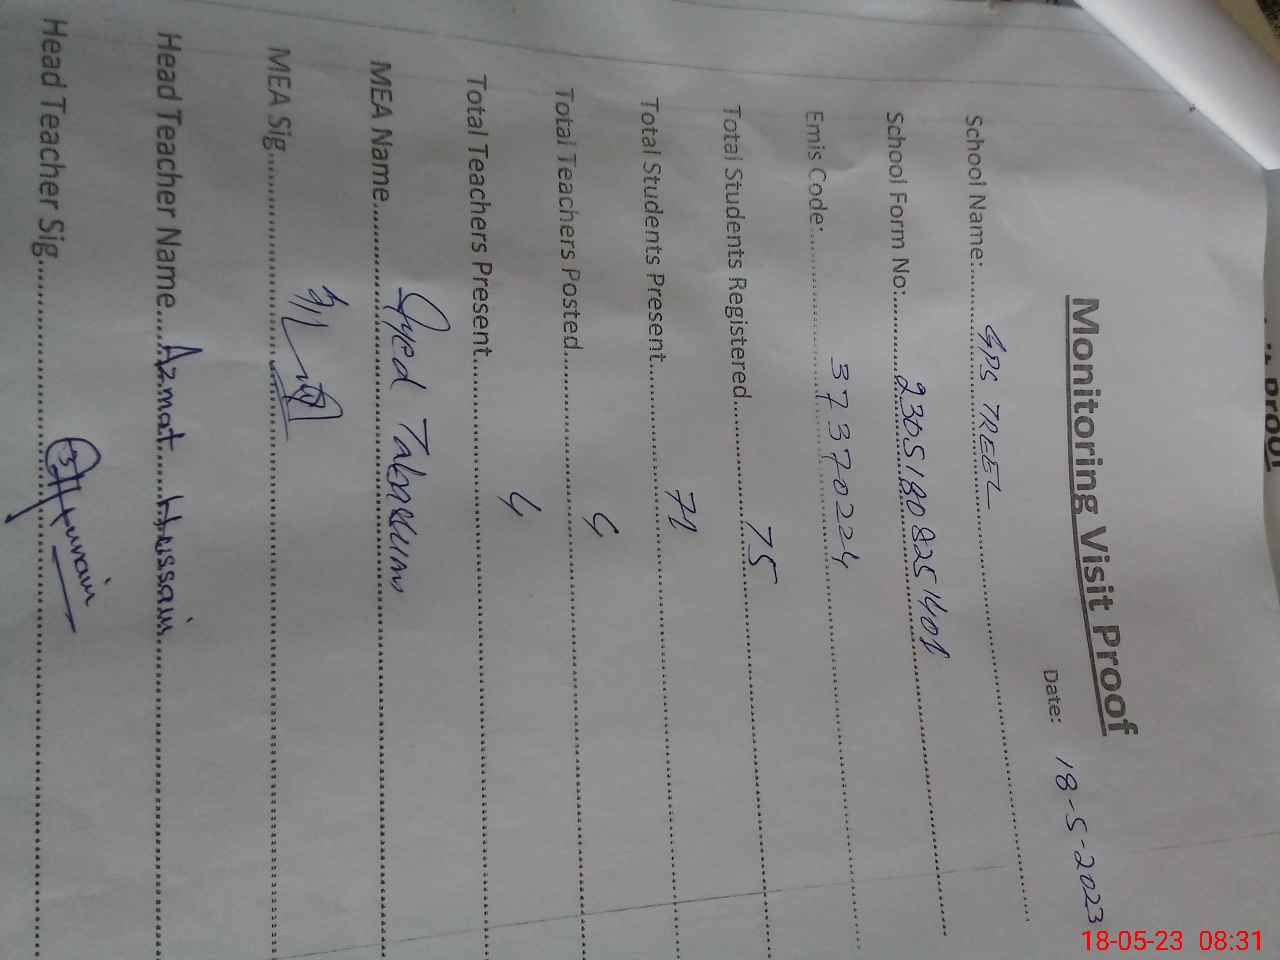 Proof
Monitoring Visit Proof
Date: 18-5-2023
School Name:.......GPS TREEL.......
School Form No:.......23051808251401.......
Emis Code:.......37370224.......
Total Students Registered.......75.......
Total Students Present.......71.......
Total Teachers Posted.......4.......
Total Teachers Present.......4.......
MEA Name.......Syed Tabassum.......
MEA Sig.......
Head Teacher Name.......Azmat Hussain.......
Head Teacher Sig.......Hussain.......
18-05-23 08:31